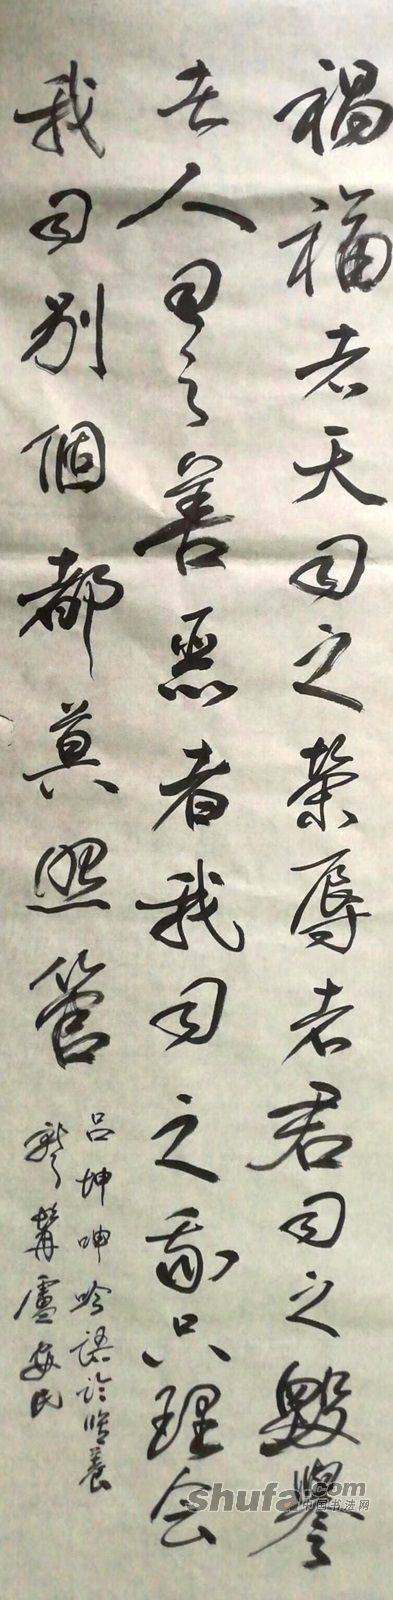 禍福者天司之榮辱者君司之毀譽
者人司之善惡者我司之我只理會
我司別個都莫照管
呂坤呻吟語論脩養
盧安民
shufa.com
中国书法网